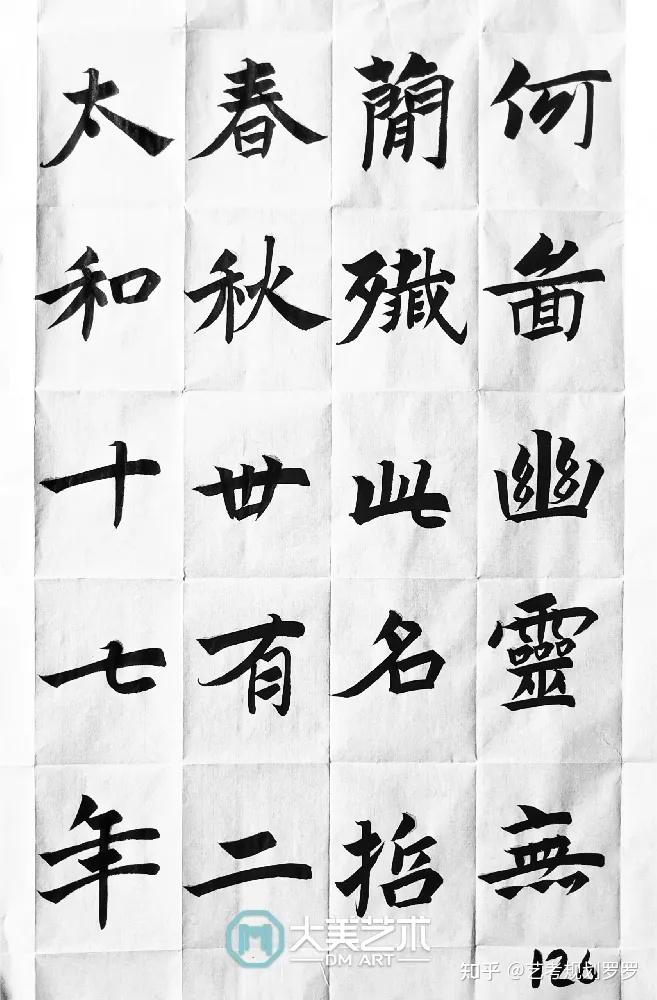 何啚幽靈無
簡殲此名哲
春秋丗有二
太和十七年
126
大美艺术
DM ART
知乎 @艺考规划罗罗